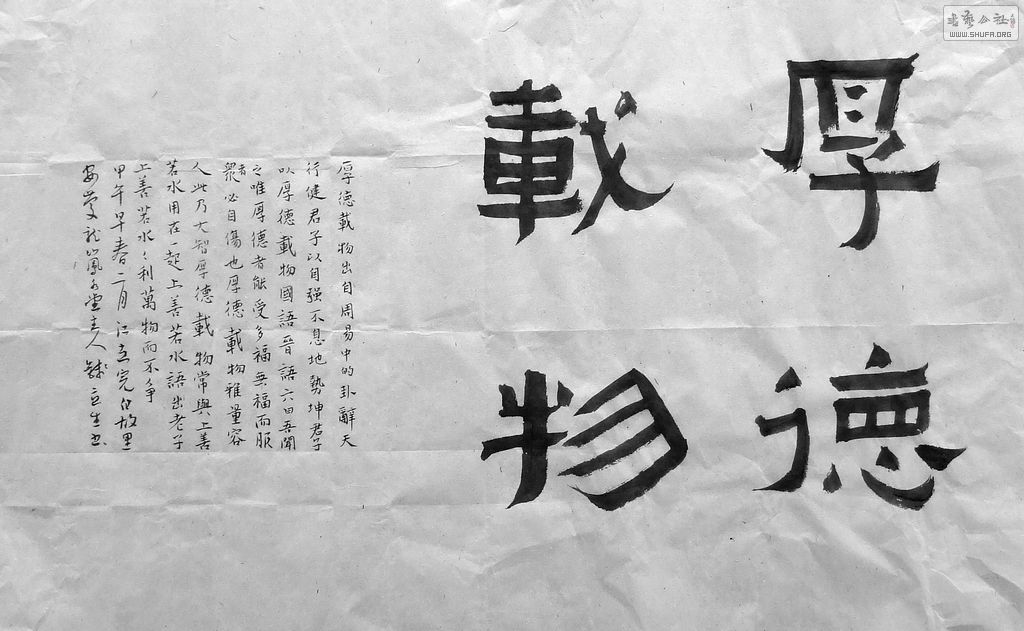 厚德
載物
厚德載物出自周易中的卦辭天
行健君子以自强不息地勢坤君子
以厚德載物國語晉語六曰吾聞
之唯厚德者能受多福無福而服
衆者必自傷也厚德載物雅量容
人此乃大智厚德載物常與上善
若水用在一起上善若水語出老子
上善若水水利萬物而不争
甲午早春二月江克完白故里
堂主人立生书
书艺公社
WWW.SHUFA.ORG